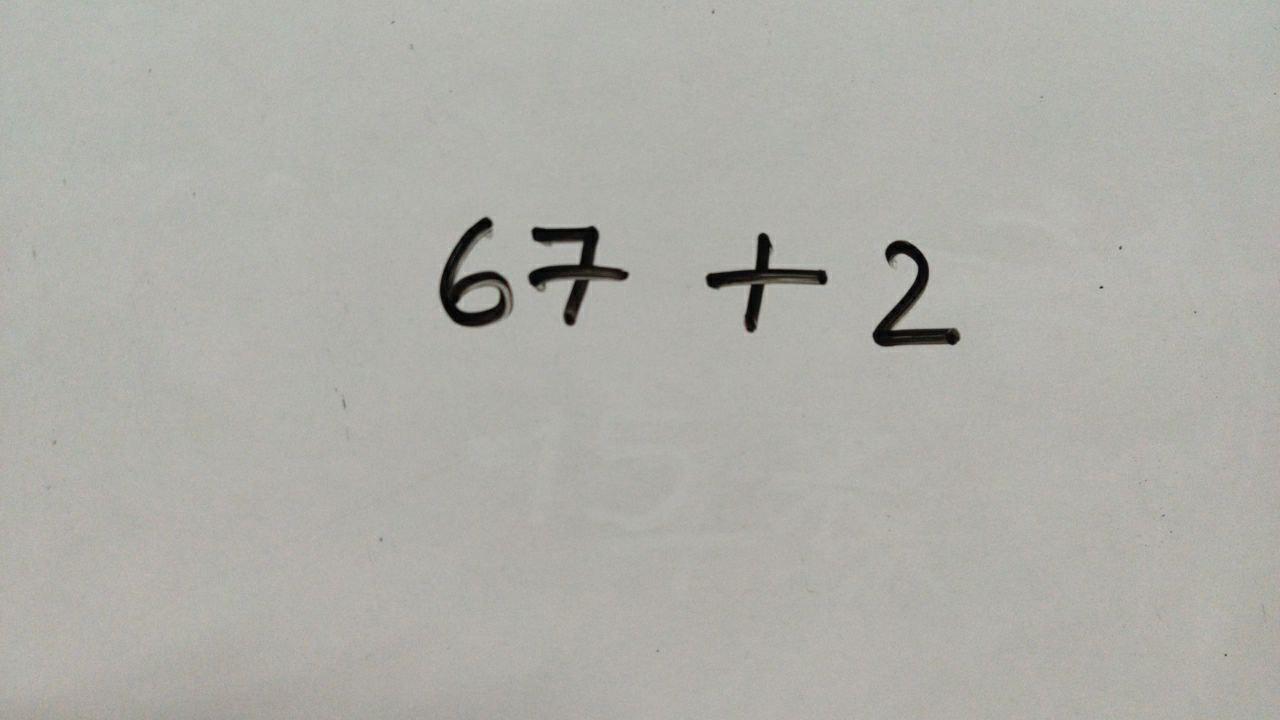 67 + 2